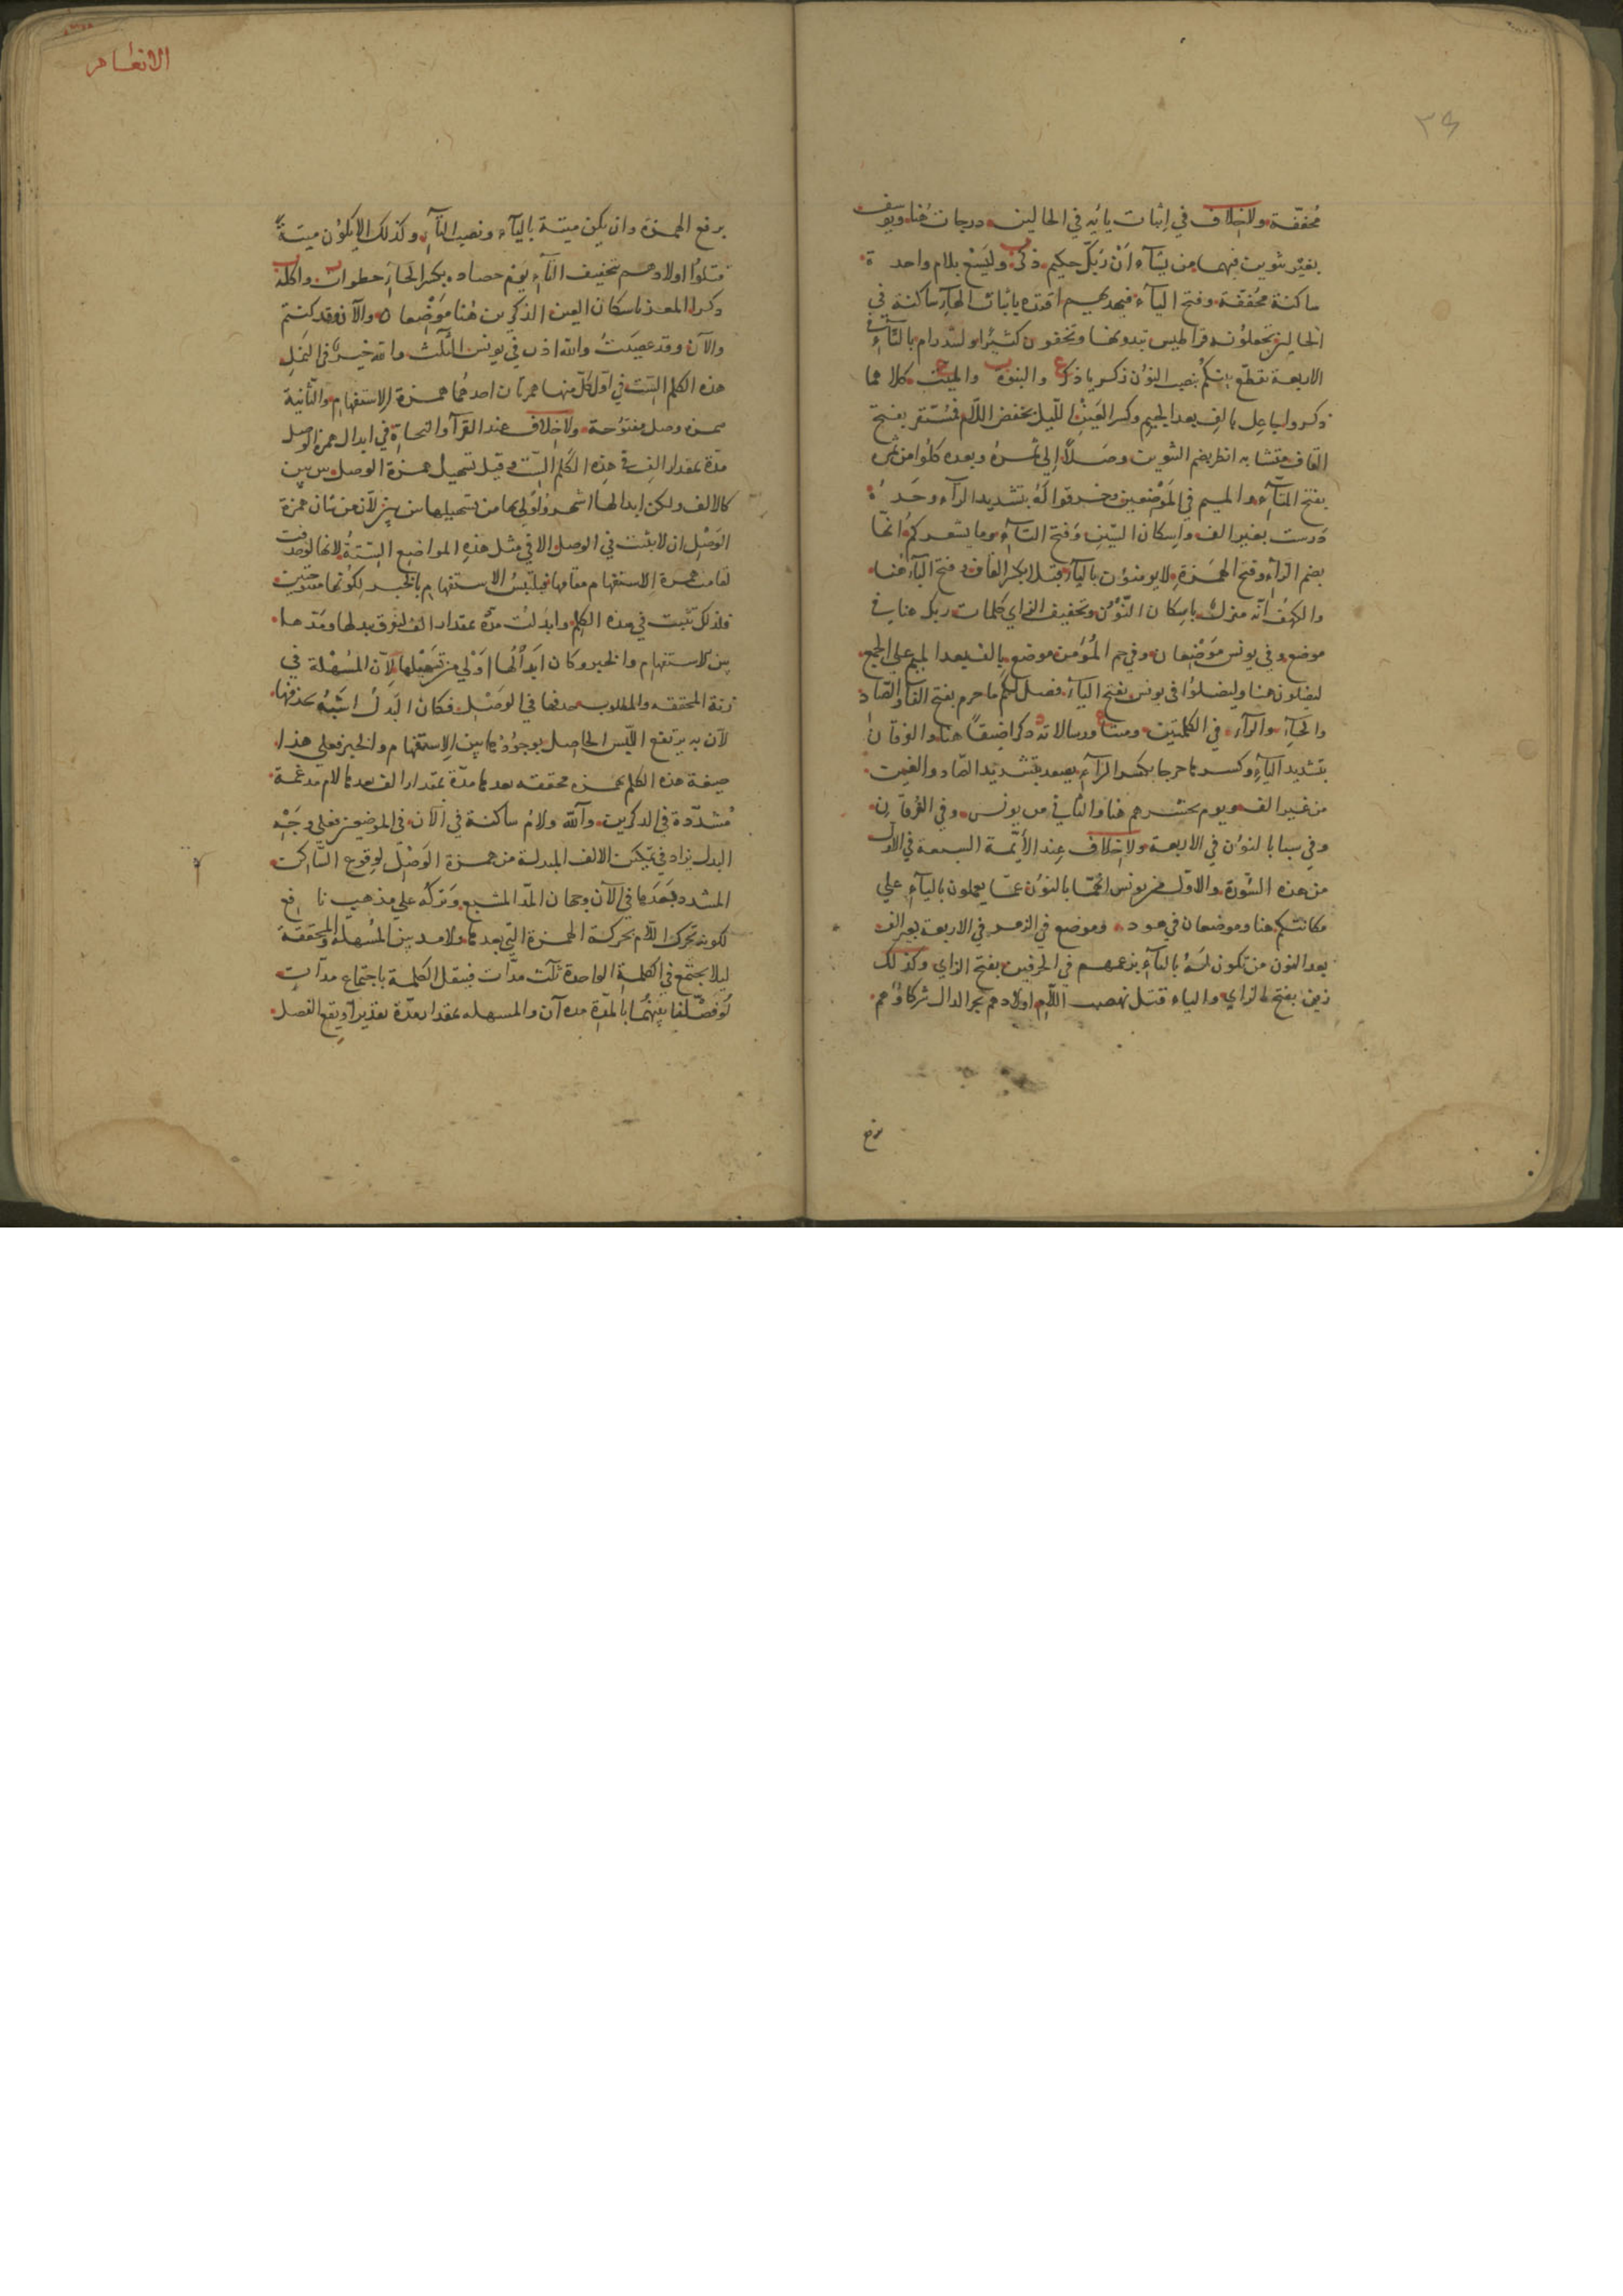 ٣٤
مخففة ولاخلاف في إثبات يائه في الحالين درجات هنا ويوسف
بغير تنوين فيهما من يشآء إن ربك حكيم ذكر واليسع بلام واحدة
ساكنة مخففة وفتح اليآء فبهديهم اقتده باثبات الهآء ساكنة في
الحالين تجعلونه قراطيس تبدونها وتخفون كثيرا ولتنذر ام بالتآء في
الاربعة تقطع بينكم بنصب النون ذكر يا ذكر والنبوة والميت كلاهما
ذكر وجاعل بالف بعد الجيم وكسر العين الليل بخفض اللام فمستقر بفتح
القاف متشابه انظر بضم التنوين وصلا إلى ثمره وبعده كلوا من ثمره
بفتح الثآء والميم في الموضعين وخرقوا له بتشديد الرآء وحده
درست بغير الف واسكان السين وفتح التآء وما يشعركم انها
بضم الرآء وفتح الهمزة لا يومنون باليآء قبلا بكسر القاف وفتح البآء هنا
والكهف انه منزل باسكان النون وتخفيف الزاي كلمات ربك هنا في
موضع وفي يونس موضعان وفي حم المؤمن موضع بالف بعد الميم على الجمع
ليضلون هنا وليضلوا في يونس بفتح اليآء فصل لكم ما حرم بفتح الفآء والصاد
والحآء والرآء في الكلمتين وميتا ورسالاته ذكرا ضيقا هنا والفرقان
بتشديد اليآء وكسرها حرجا بكسر الرآء يصعد بتشديد الصاد والعين
من غير الف ويوم يحشرهم هنا والثاني من يونس وفي الفرقان
وفي سبا بالنون في الاربعة ولاخلاف عند الأئمة السبعة في الاول
من هذه السورة والاول من يونس انهما بالنون عما يعملون باليآء على
مكانتكم هنا وموضعان في هود وموضع في الزمر في الاربعة بغير الف
بعد النون من تكون له بالتآء بزعمهم في الحرفين بفتح الزاي وكذلك
زين بفتح الزاي والياء قتل بنصب اللام اولادهم بجر الدال شركاؤهم
برفع
الانعام
برفع الهمزة وان يكن ميتة باليآء ونصب التآء وكذلك الا يكون ميتة
قتلوا اولادهم بتخفيف التآء يوم حصاده بكسر الحآء خطوات واكله
ذكرا المعز باسكان العين الذكرين هنا موضعان والآن وقد كنتم
والآن وقد عصيت والله اذن في يونس الثلث والله خير في النمل
هذه الكلم الست في اول كل منها همزتان احدهما همزة الاستفهام والثانية
همزة وصل مفتوحة ولاخلاف عند القرآء والنحاة في ابدال همزة الوصل
مدة بمقدار الف في هذه الكلم الست وقيل تسهيل همزة الوصل بين بين
كالالف ولكن ابدالها اشهر واولى بها من تسهيلها بين بين لان من شان همزة
الوصل ان لا تثبت في الوصل الا في مثل هذه المواضع الستة لانها لو حذفت
لقامت همزة الاستفهام مقامها فيلتبس الاستفهام بالخبر لكونهما مفتوحتين
فلذلك تثبت في هذه الكلم وابدلت مدة بمقدار الف ليفرق بدلها ومدها
بين الاستفهام والخبر وكان ابدالها اولى من تسهيلها لان المسهلة في
زنة المحققه والمطلوب حذفها في الوصل فكان البدل اشبه بحذفها
لان به يرتفع اللبس الحاصل بوجودها بين الاستفهام والخبر فعلى هذا
صيغة هذه الكلم بهمزة محققه بعدها مدة بمقدار الف بعدها لام مدغمة
مشددة في الذكرين وآلله ولام ساكنة في الآن في الموضعين فعلى وجه
البدل يزاد في تمكين الالف المبدلة من همزة الوصل لوقوع الساكن
المشدد بعدها في الآن وجهان المد المشبع وتركه على مذهب نافع
لكونه تحرك اللام بحركة الهمزة التي بعدها ولا مد بين المسهلة والمحققة
ليلا يجتمع في الكلمة الواحدة ثلث مدات فيثقل الكلمة باجتماع مدات
لو فصلنا بينهما بالمدة مده آن والمسهله بمقدار مدة تقديرا ويقع الفصل